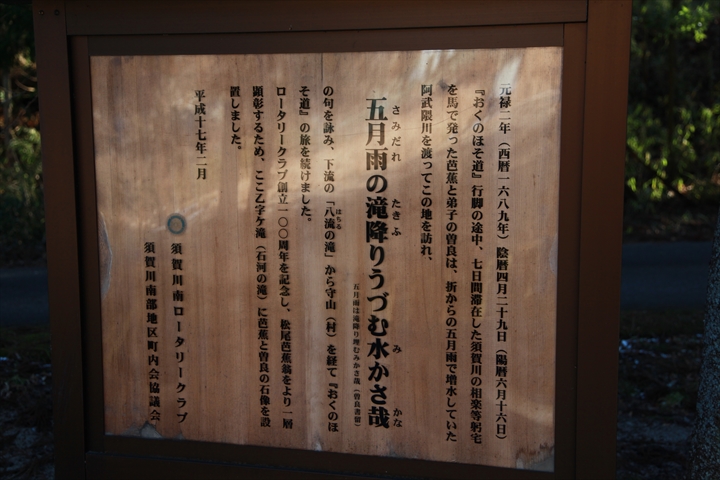 元禄二年（西暦一六八九年）陰暦四月二十九日（陽暦六月十六日）
『おくのほそ道』行脚の途中、七日間滞在した須賀川の相楽等躬宅
を馬で発った芭蕉と弟子の曽良は、折からの五月雨で増水していた
阿武隈川を渡ってこの地を訪れ、
さみだれ たきふ み かな
五月雨の滝降りうづむ水かさ哉
五月雨は滝降り埋むみかさ哉（曽良書留）
の句を詠み、下流の「八流の滝」から守山（村）を経て『おくのほ
はちる
そ道』の旅を続けました。
ロータリークラブ創立一〇〇周年を記念し、松尾芭蕉翁をより一層
顕彰するため、ここ乙字ケ滝（石河の滝）に芭蕉と曽良の石像を設
置しました。
平成十七年二月
須賀川南ロータリークラブ
須賀川南部地区町内会協議会